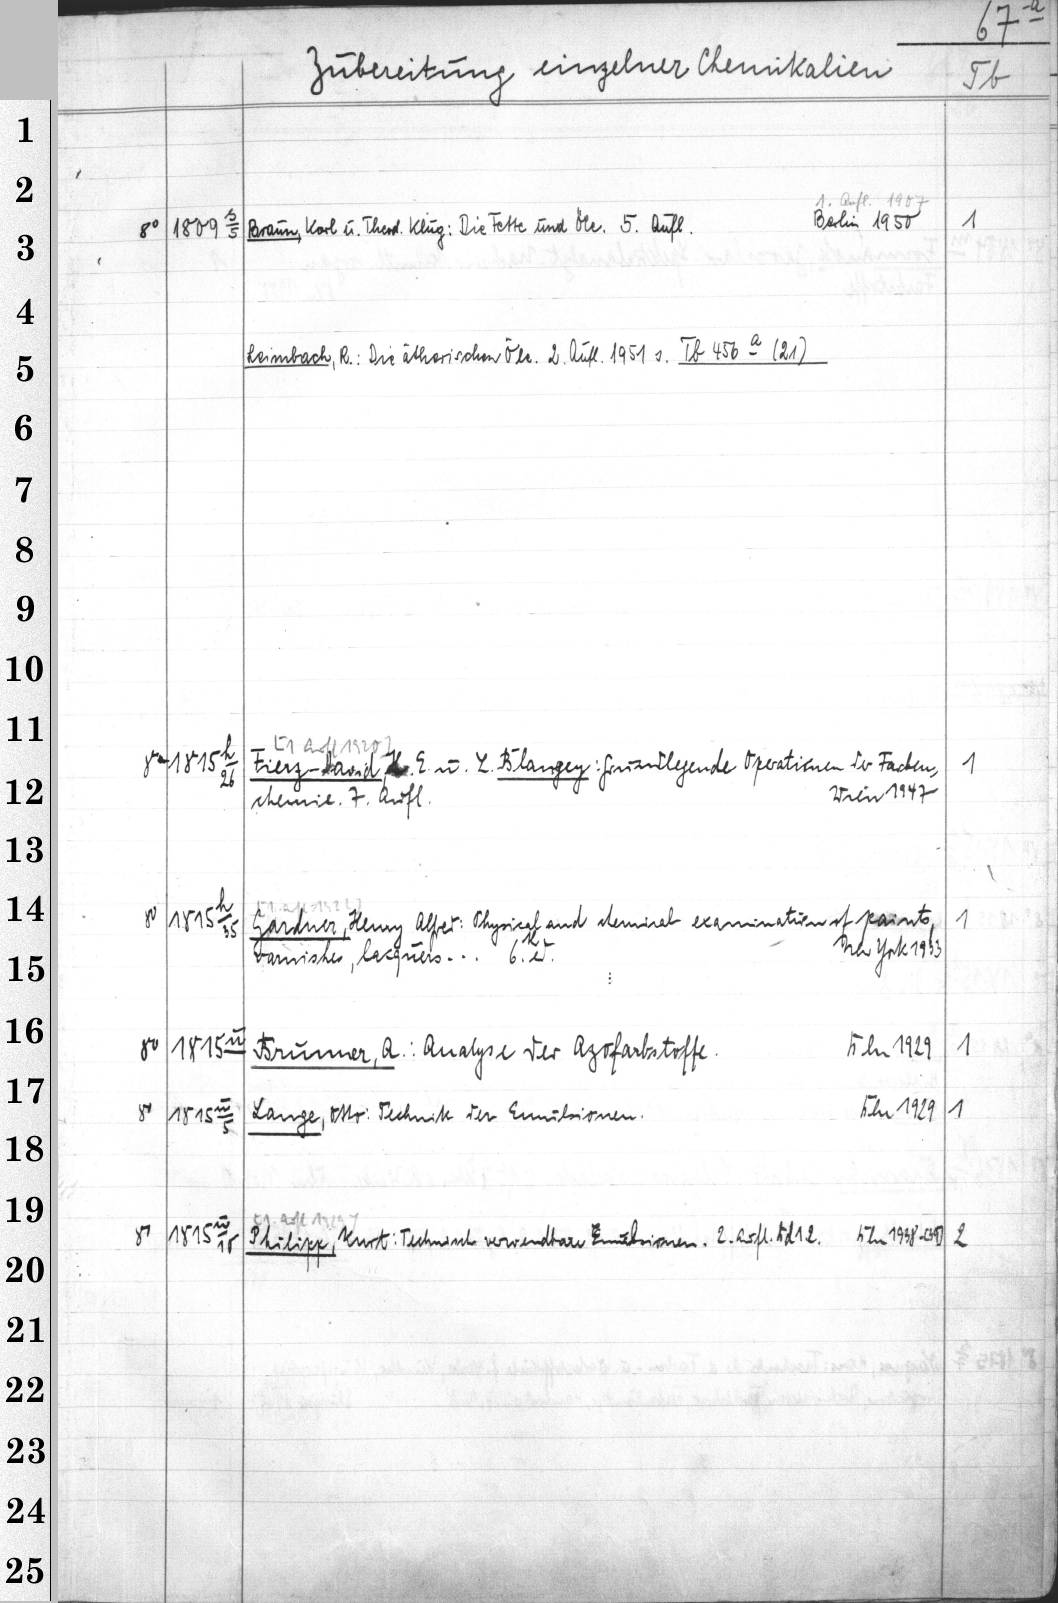 67-a
Zubereitung einzelner Chemikalien
Tb
1
2
1. Aufl. 1907
8° 1809 s/5 Braun, Karl u. Theod. Klug: Die Fette und Öle. 5. Aufl. Berlin 1950 1
3
4
Leimbach, R.: Die ätherischen Öle. 2. Aufl. 1951 s. Tb 456 a (21)
5
6
7
8
9
10
11
[1 Aufl 1920]
8° 1815 h/26 Fierz-David, H. E. u. L. Blangey: Grundlegende Operationen der Farben,
chemie. 7. Aufl. Wien 1947 1
12
13
14
8° 1815 h/35 Gardner, Henry Alfred: Physical and chemical examination of paints, 1
varnishes, lacquers... 6. ed. New York 1933
15
16
8° 1815 u Brunner, A.: Analyse der Azofarbstoffe. Bln 1929 1
17
8° 1815 u/5 Lange, Otto: Technik der Emulsionen. Bln 1929 1
18
19
[1. Aufl 1929]
8° 1815 u/18 Philipp, Kurt: Technisch verwendbare Emulsionen. 2. Aufl. Bd 1 2. Bln 1938 2
20
21
22
23
24
25